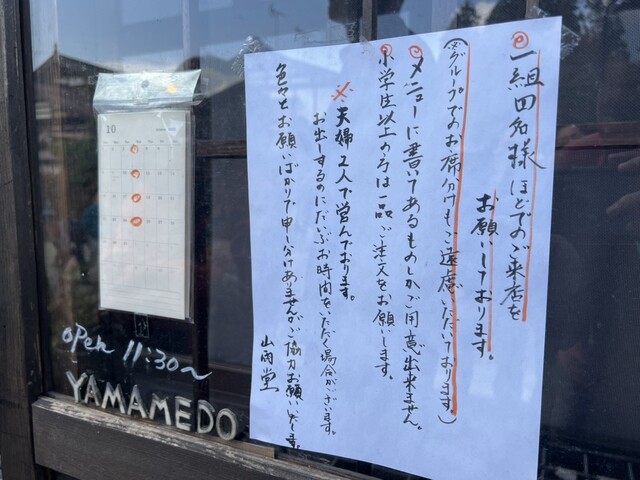 ◎一組四名様ほどでのご来店を
お願いしております。
(※グループでのお席分けもご遠慮いただいております。)
○メニューに書いてあるものしかご用意出来ません。
○小学生以上の方は一品ご注文をお願いします。
※夫婦2人で営んでおります。
お出しするのにだいぶお時間をいただく場合がございます。
色々とお願いばかりで申し分けありませんがご協力お願いいたします。
山雨堂
10
OPEN 11:30〜
YAMAMEDO